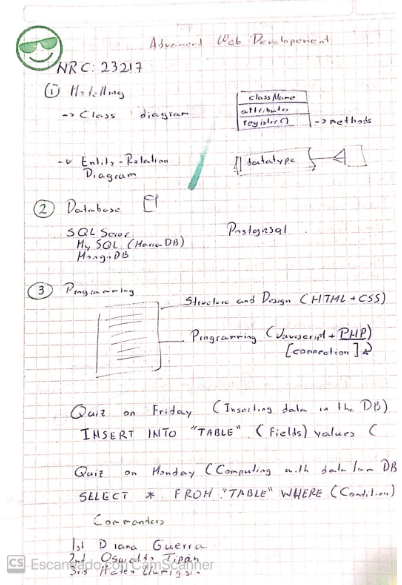 Advanced Web Development
NRC: 23217
① Modelling
-> Class diagram
className
attributes
register() -> methods
-> Entity-Relation
Diagram
datatype
② Database
SQL Server
Postgresql
My SQL (Maria DB)
MongoDB
③ Programming
Structure and Design (HTML + CSS)
Programming (Javascript + PHP)
[connection]
Quiz on Friday (Inserting data in the DB)
INSERT INTO "TABLE" (Fields) values (
Quiz on Monday (Computing with data from DB
SELECT * FROM "TABLE" WHERE (Condition)
Commanders
1st Diana Guerra
2nd Oswaldo Tipán
3rd
CS Escaneado con CamScanner